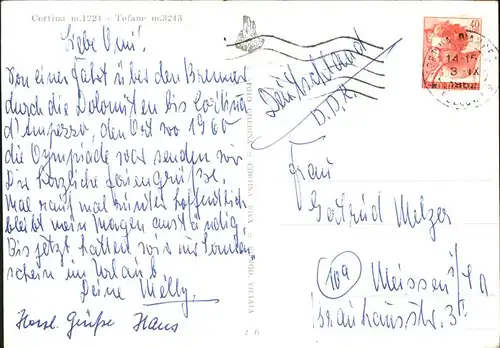 Cortina m.1224 - Tofane m.3243
Liebe Omi!
Von einer Fahrt über den Brenner
durch die Dolomiten bis Cortina
d'Ampezzo, den Ort wo 1960
die Olympiade war senden wir
Dir herzliche Feriengrüße.
Mal rauf mal runter hoffentlich
bleibt mein Magen anständig.
Bis jetzt hatten wir nur Sonnen-
schein im Urlaub
Deine Melly.
Herzl. Grüße Hans
40
14-15
Deutschland
D.D.R.
Frau
Gertrud Melzer
10a
Meissen/Sa
Brauhausstr. 3